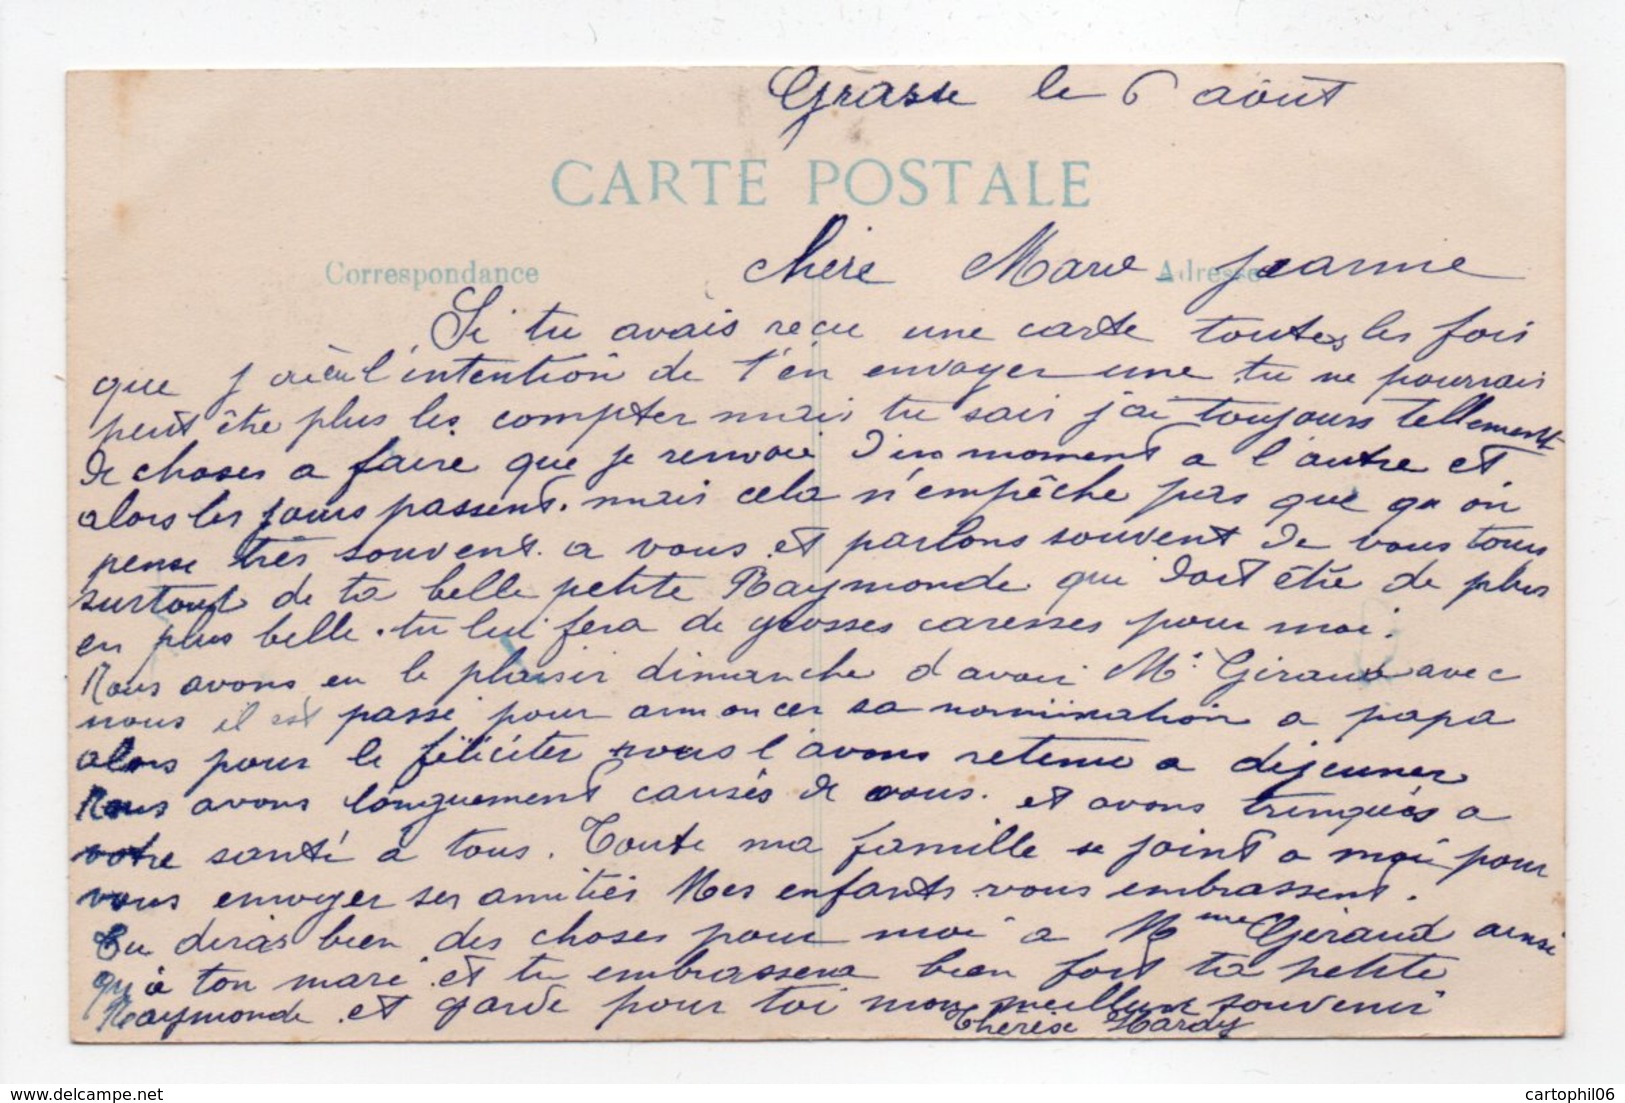 Grasse le 6 août
CARTE POSTALE
Correspondance
Adresse
Chère Marie Jeanne
Si tu avais reçu une carte toutes les fois
que j'ai eu l'intention de t'en envoyer une tu ne pourrais
peut être plus les compter mais tu sais j'ai toujours tellement
de choses a faire que je renvoie d'un moment a l'autre et
alors les jours passent. mais cela n'empêche pas que qu'on
pense très souvent a vous et parlons souvent de vous tous
surtout de ta belle petite Raymonde qui doit être de plus
en plus belle. tu lui fera de grosses caresses pour moi.
Nous avons eu le plaisir dimanche d'avoir Mr Giraud avec
nous il est passé pour annoncer sa nomination a papa
alors pour le féliciter nous l'avons retenu a déjeuner
Nous avons longuement causés de vous. et avons trinqués a
votre santé à tous. Toute ma famille se joint a moi pour
vous envoyer ses amitiés Mes enfants vous embrassent.
Tu diras bien des choses pour moi a Mme Géraud ainsi
qu'à ton mari et tu embrassera bien fort ta petite
Raymonde et garde pour toi mon meilleur souvenir
Thérèse Hardy
cartophil06